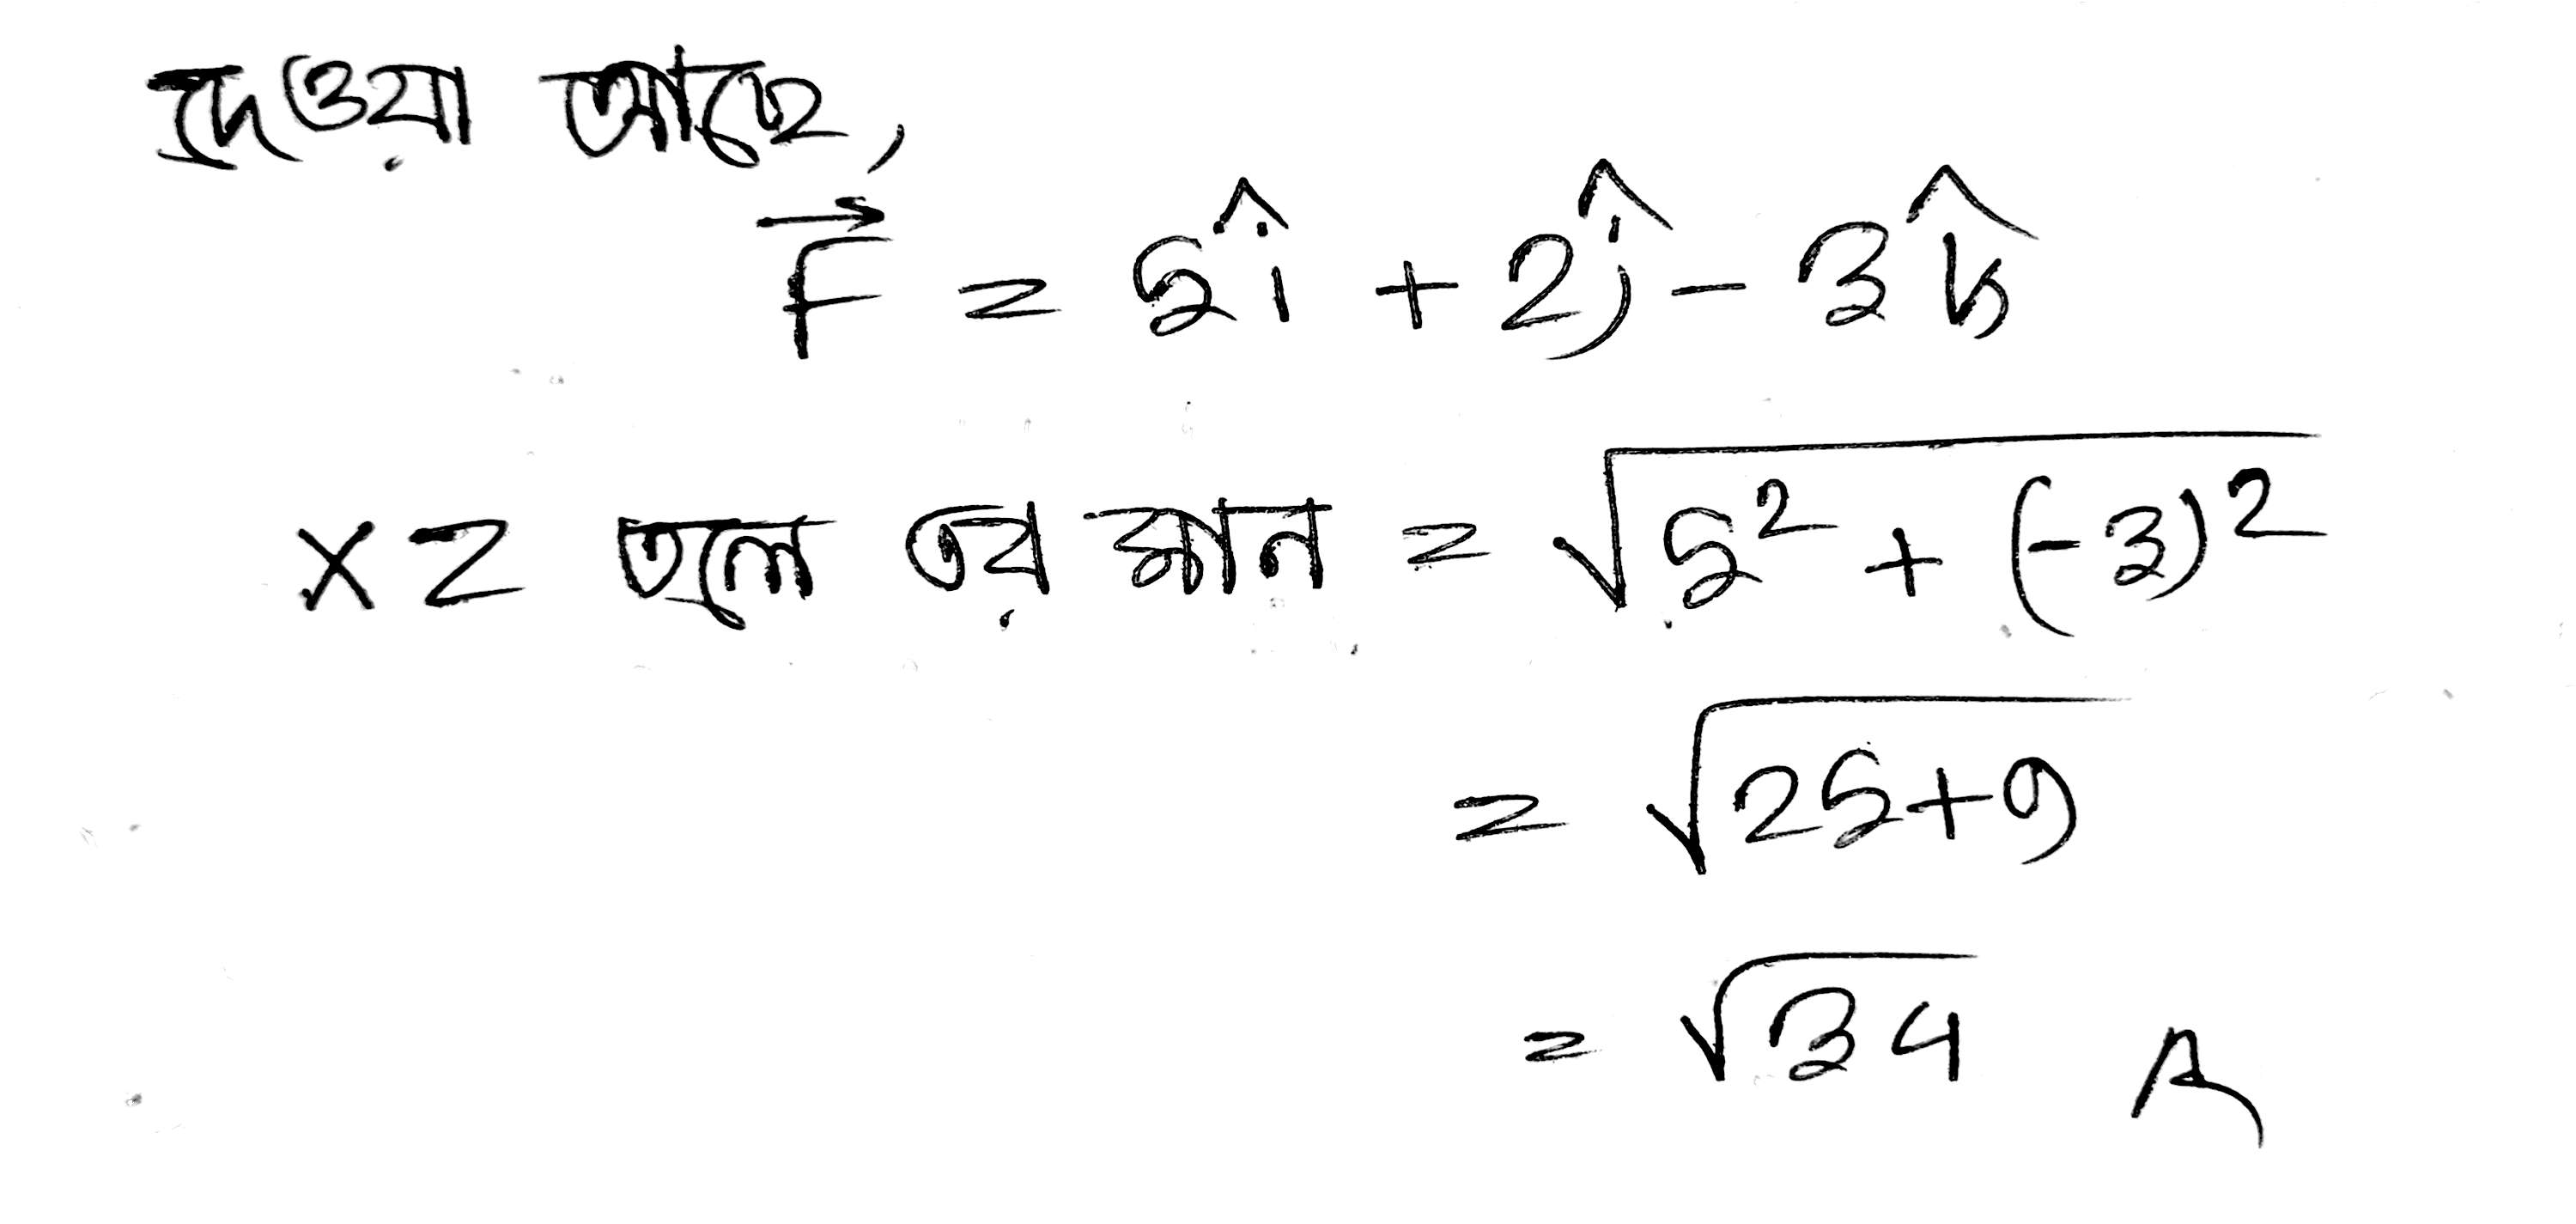 দেওয়া আছে,
$\vec{F} = 5\hat{i} + 2\hat{j} - 3\hat{k}$
XZ তলে এর মান $= \sqrt{5^2 + (-3)^2}$
$= \sqrt{25+9}$
$= \sqrt{34}$ A